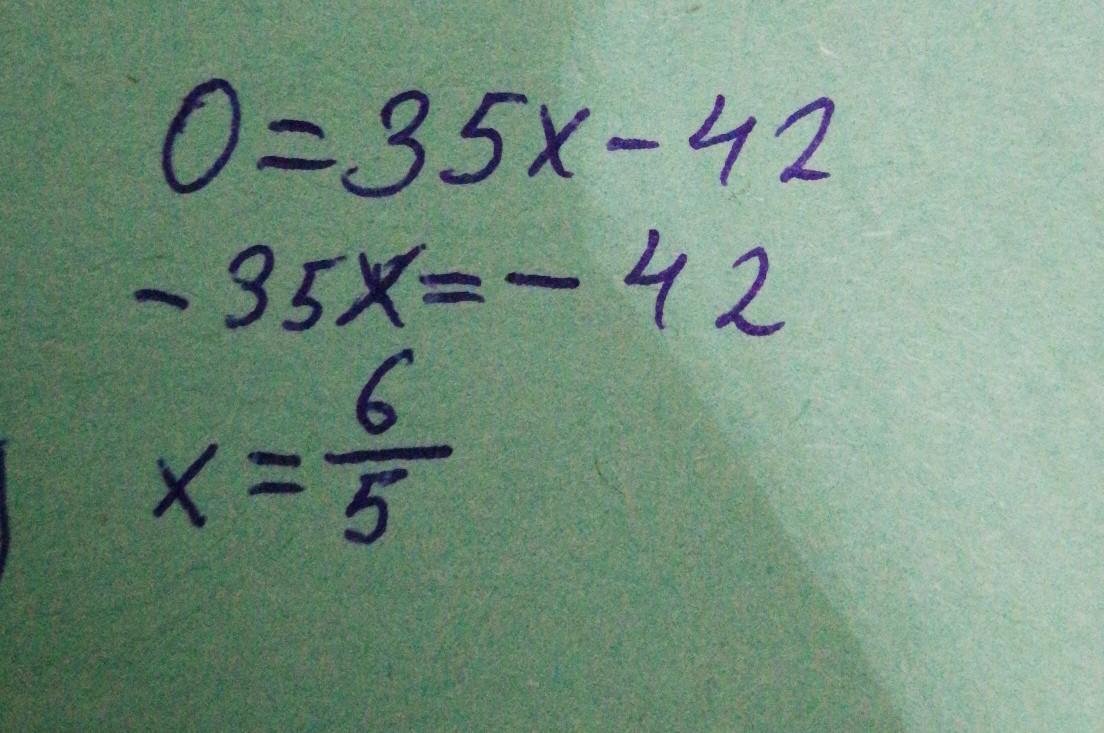 0=35x-42
-35x=-42
x=6/5